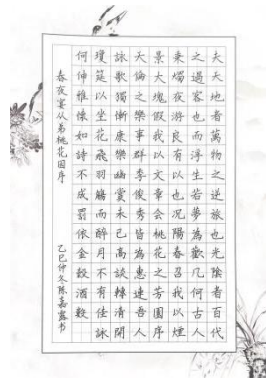 夫天地者萬物之逆旅也光陰者百代
之過客也而浮生若夢為歡几何古人
秉燭夜游良有以也況陽春召我以煙
景大塊假我以文章會桃花之芳園序
天倫之樂事群季俊秀皆為惠連吾人
詠歌獨慚康樂幽賞未已高談轉清開
瓊筵以坐花飛羽觴而醉月不有佳詠
何伸雅懷如詩不成罰依金穀酒數
春夜宴从弟桃花园序
乙巳仲冬陈嘉露书